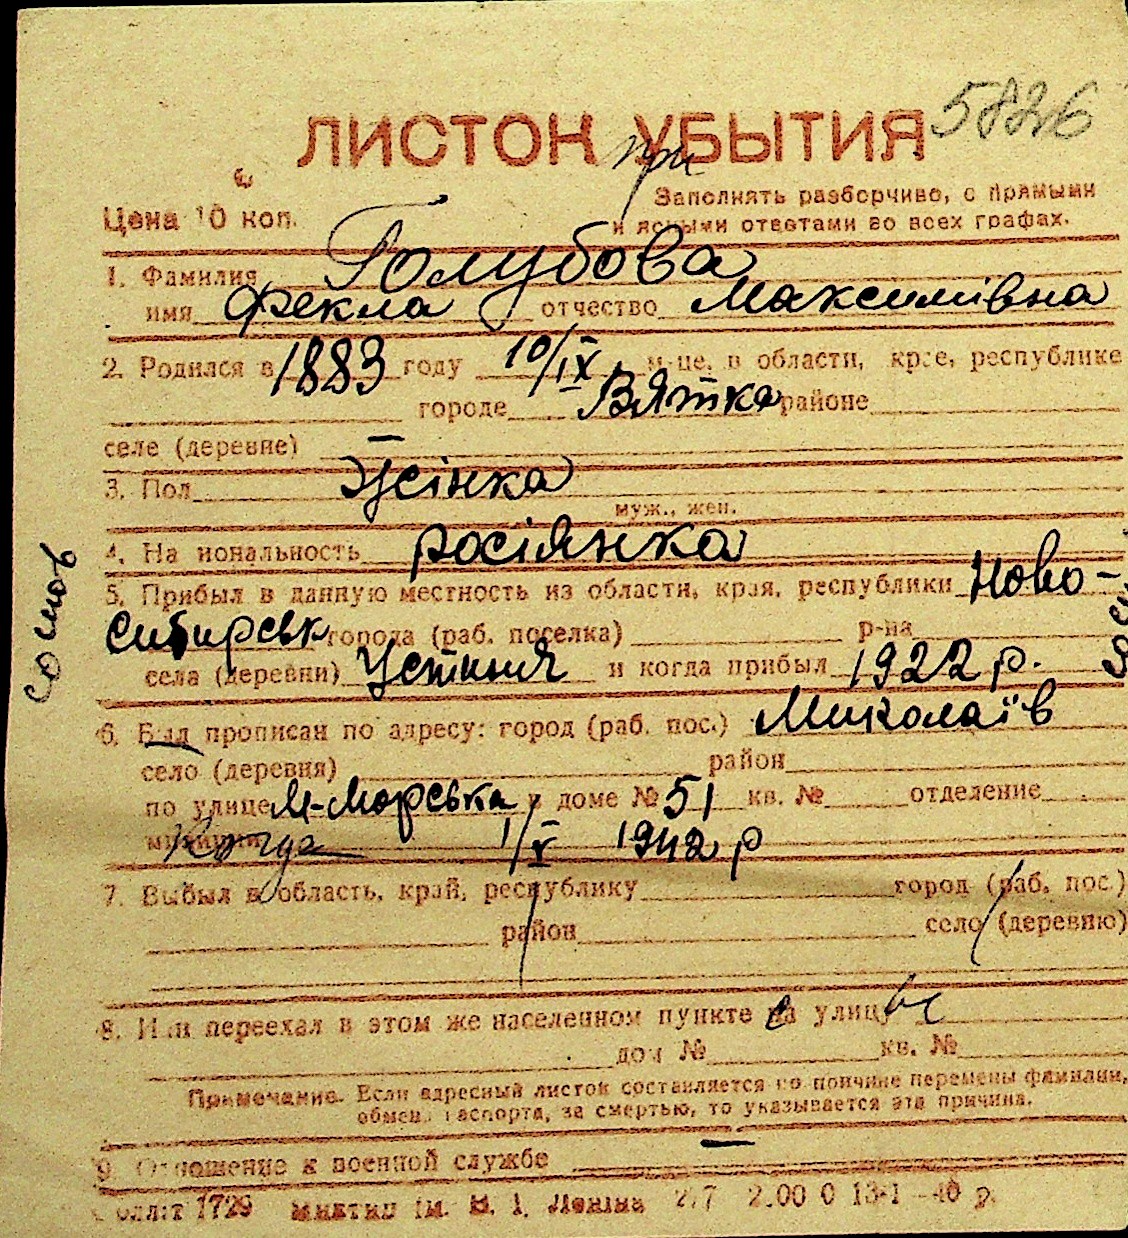 5826
ЛИСТОК УБЫТИЯ
при
Цена 10 коп.
Заполнять разборчиво, с прямыми
и ясными ответами во всех графах.
1. Фамилия Голубова
имя Фекла отчество Максимівна
2. Родился в 1883 году 10/IX м-це, в области, крае, республике
городе Вятка районе
селе (деревне) —
3. Пол Жінка
муж., жен.
4. Национальность росіянка
5. Прибыл в данную местность из области, края, республики Ново-
Сибирськ города (раб. поселка) р-на
села (деревни) и когда прибыл 1922 р.
6. Был прописан по адресу: город (раб. пос.) Миколаїв
село (деревня) район
по улице М-Морська в доме № 51 кв. № отделение
милиции 1/X 1942 р
7. Выбыл в область, край, республику город (раб. пос.)
район село (деревню)
8. Или переехал в этом же населенном пункте на улицу
дом № кв. №
Примечание. Если адресный листок составляется по причине перемены фамилии,
обмена паспорта, за смертью, то указывается эта причина.
9. Отношение к военной службе —
1729 ім. В. І. Леніна 2.00 0 13-1-40 р.